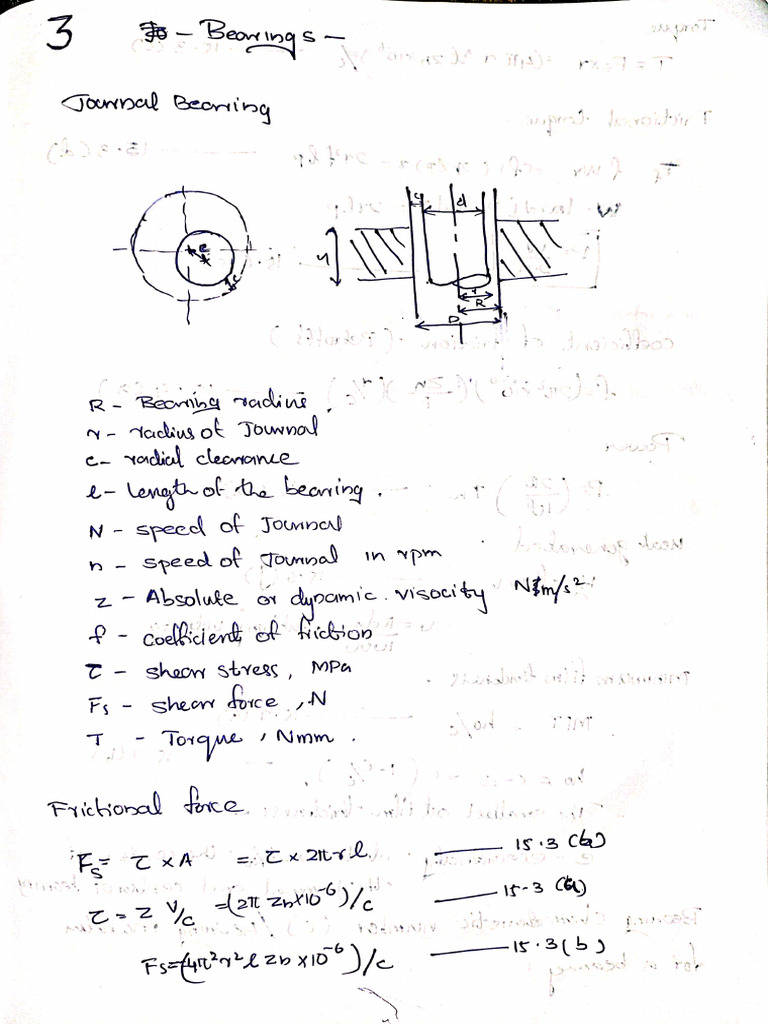 3 - Bearings -
Journal Bearing
e
c
c d
r
R
D
R - Bearing radius.
r - radius of Journal
c - radial clearance
l - length of the bearing.
N - speed of Journal
n - speed of Journal in rpm
z - Absolute or dynamic. visocity
f - coefficient of friction
τ - shear stress, MPa
Fs - shear force, N
T - Torque, Nmm.
Frictional force
Fs = τ × A = τ × 2πrl 15.3
τ = z V/c = (2π zn×10⁻⁶)/c 15-3
Fs = (4π²r²l zn ×10⁻⁶)/c 15.3(b)